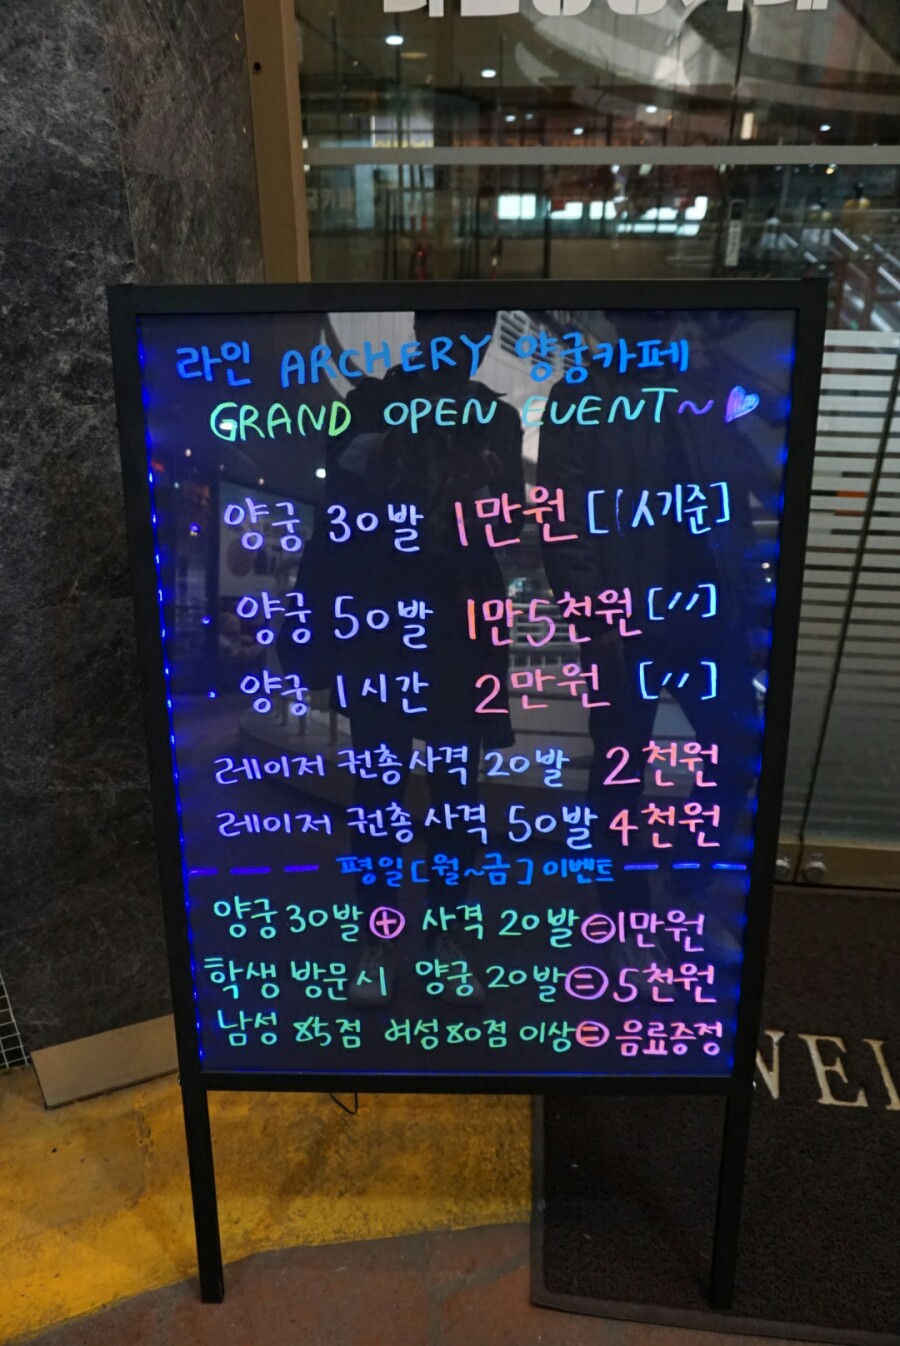 라인 ARCHERY 양궁카페
GRAND OPEN EVENT~
양궁 30발 1만원 [1人기준]
양궁 50발 1만5천원 [〃]
양궁 1시간 2만원 [〃]
레이저 권총사격 20발 2천원
레이저 권총사격 50발 4천원
평일[월~금]이벤트
양궁30발⊕ 사격 20발⊜1만원
학생 방문시 양궁20발⊜5천원
남성 85점 여성80점 이상⊜음료증정